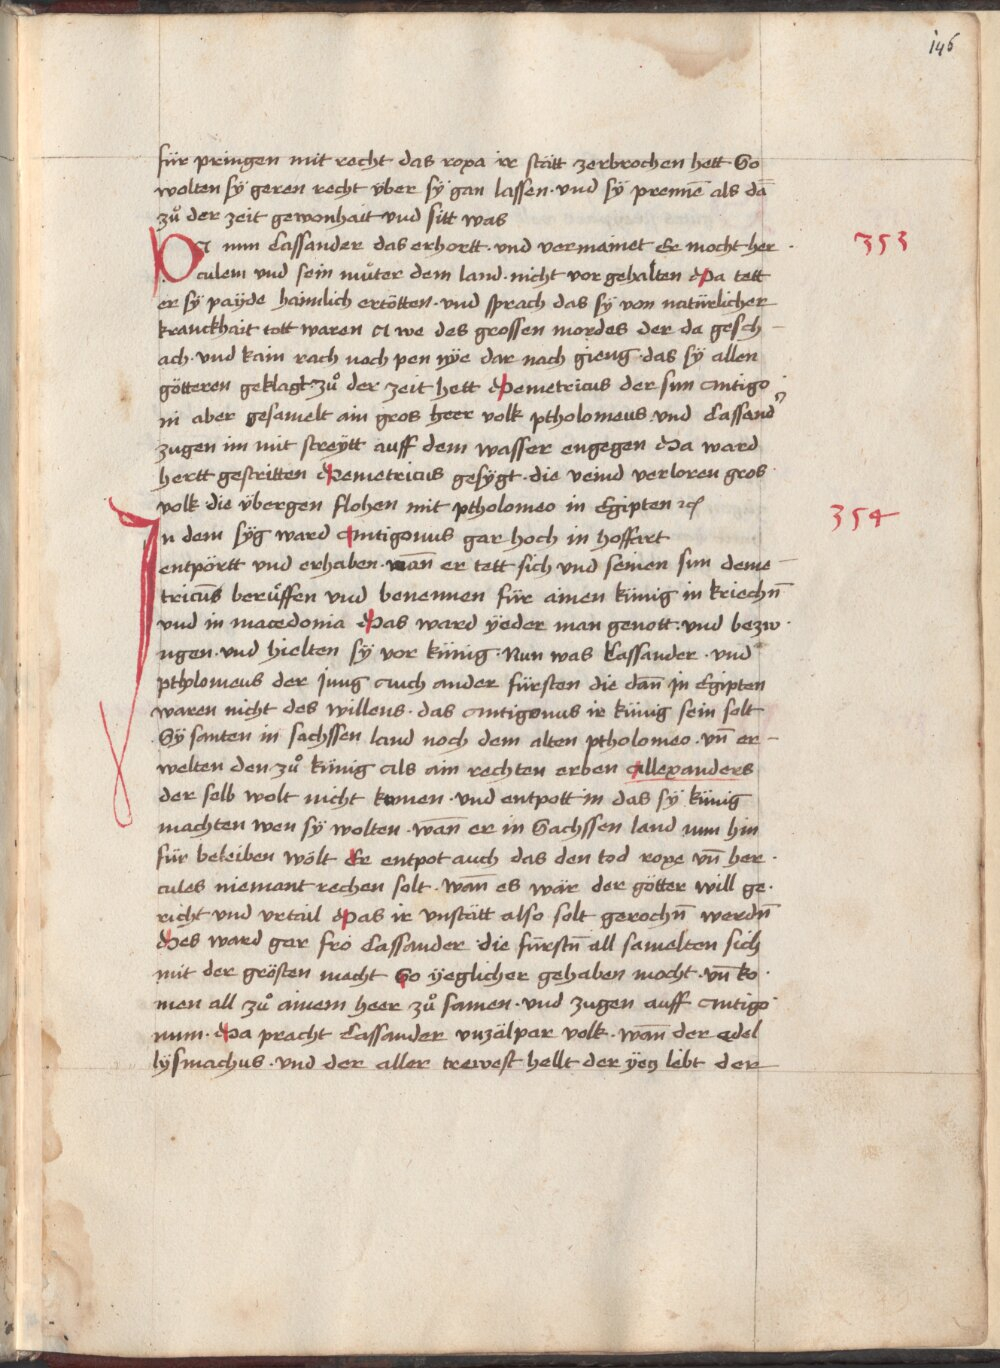 146
für pringen mit recht das roxa ir stätt zerbrochen hett So
wolten sÿ geren recht über sÿ gan lassen · vnd sÿ prennē als dā
zů der zeit gewonhait vnd sitt was
353
DA nun Cassander das erhortt · vnd vermainet Er mocht her ·
culem vnd sein můter dem land · nicht vor gehalten Da tett
er sÿ paÿde haimlich ertötten · vnd sprach das sÿ von natürlicher
kranckhait tott waren A we des grossen mordes der da gesch –
ach · vnd kain rach noch pen nÿe dar nach gieng · das sÿ allen
götteren geklagt · zů der zeit hett Demetricus der sun Antigo
ni aber gesamelt ain gros heer volk ptholomeus · vnd Cassandʾ
zugen im mit streÿtt auff dem wasser engegen Da ward
hertt gestritten Demetricus gesÿgt · die veind verloren gros
volk · die übergen flohen mit ptholomeo in Egipten ⁊c
354
In dem sÿg ward Antigonus gar hoch in hoffart
entpörtt vnd erhaben · wan̄ er tett sich vnd seinen sun deme –
tricūs berůffen vnd benennen für ainen künig in kriechn̄
vnd in macedonia Das ward ÿeder man genott · vnd bezw ·
ngen · vnd hielten sÿ vor künig · Nun was Cassander · vnd
ptholomeus der Jung Auch ander fürsten die dan̄ Jn Egipten
waren nicht des willens · das Antigonus ir künig sein solt
Sÿ santen in sachssen land noch dem alten ptholomeo · vn̄ er –
welten den zů künig als ain rechten erben Allexanders
der selb wolt nicht komen · vnd entpott in das sÿ künig
machten wen sÿ wolten · wan̄ er in Sachssen land nun hin
für beleiben wölt Er entpot auch das den tod roxe vn̄ her ·
cules niemant rechen solt · wan̄ es wär der götter will ge ·
richt vnd vrtail Das ir vnstätt also solt gerochn̄ werdn̄
Des ward gar fro Cassander die fürstn̄ all samelten sich
mit der grösten macht So ÿeglicher gehaben mocht · vn̄ ko ·
men all zů ainem heer zů samen · vnd zugen auff Antigo
num · Da pracht Cassander vnzälpar volk · wan̄ der edel
lÿsmachus · vnd der aller trewest hellt der ÿeg lebt der